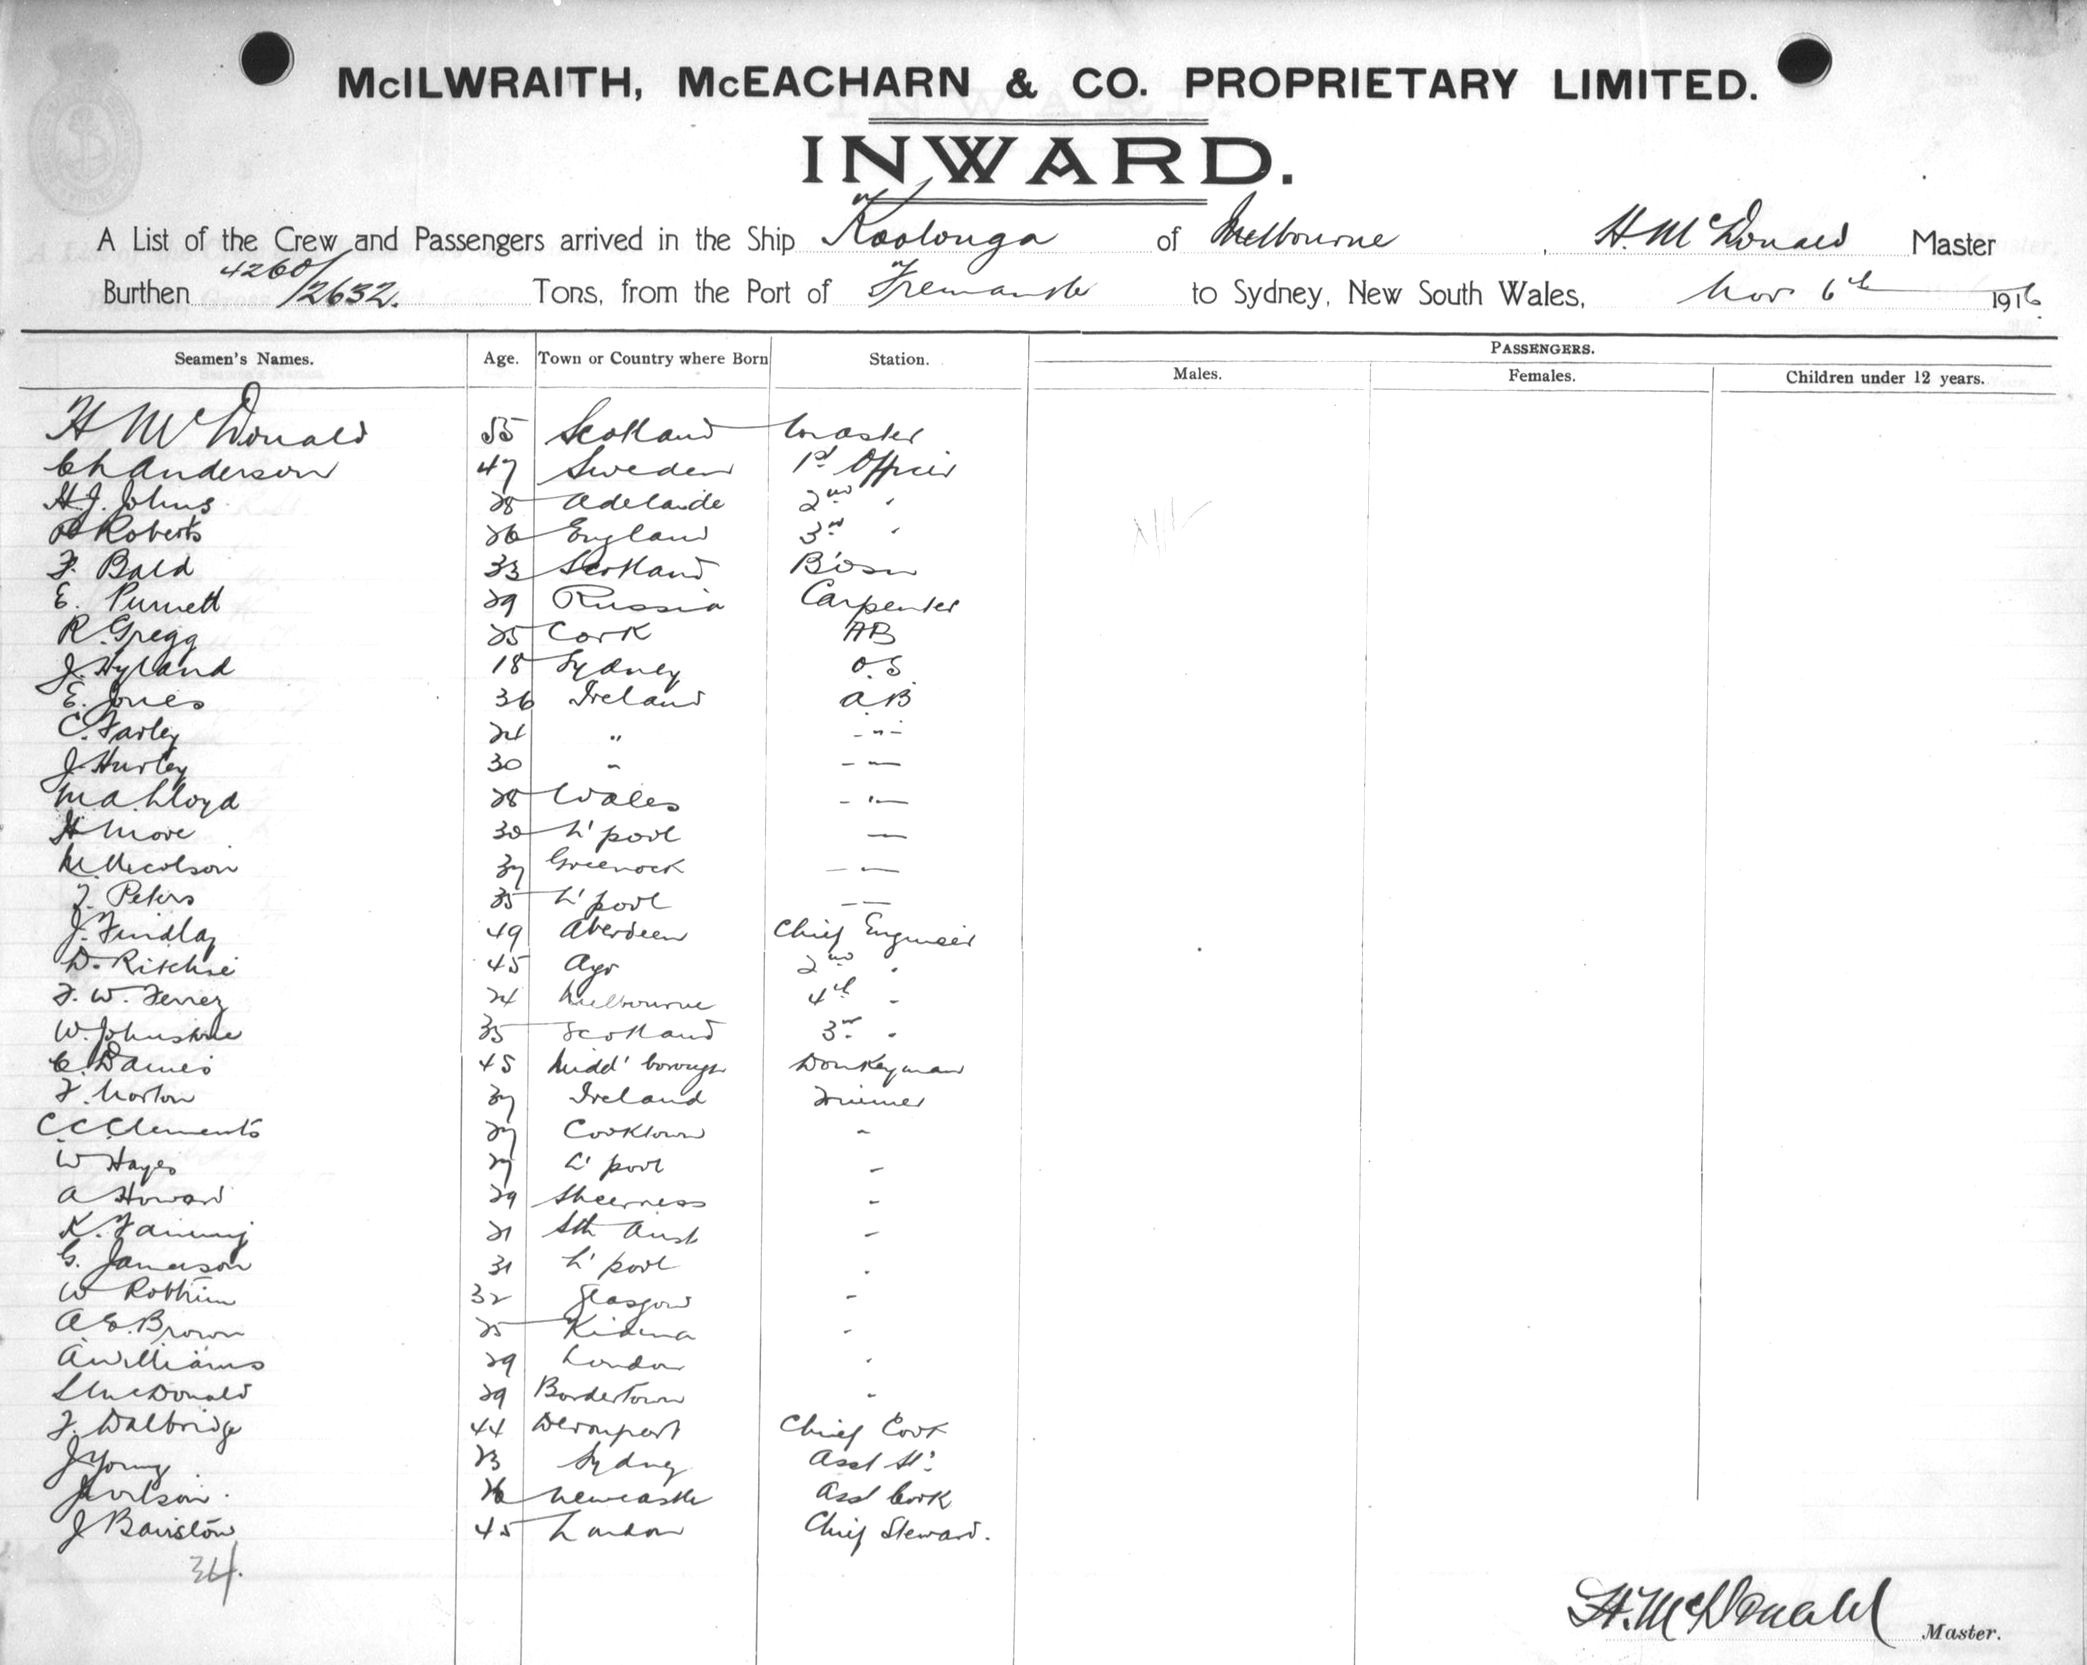 McILWRAITH, McEACHARN & CO. PROPRIETARY LIMITED.
INWARD.
A List of the Crew and Passengers arrived in the Ship Koolonga of Melbourne, H. McDonald Master
Burthen 4260/2632. Tons, from the Port of Fremantle to Sydney, New South Wales, Nov 6th 1916
Seamen's Names. Age. Town or Country where Born Station. PASSENGERS.
Males. Females. Children under 12 years.
H McDonald 55 Scotland Master
Ch Anderson 47 Sweden 1st Officer
H.J. Johns 28 Adelaide 2nd "
Roberts 26 England 3rd "
F. Bald 33 Scotland Bosn
E. Purnett 29 Russia Carpenter
R. Gregg 25 Cork AB
J. Hyland 18 Sydney O.S
E. Jones 36 Ireland A.B
C. Farley 24 " - " -
J Hurley 30 " - -
M.A. Lloyd 28 Wales - " -
H More 30 L'pool -
M. Nicolson 37 Greenock - -
J. Peters 35 L'pool - -
J. Findlay 49 Aberdeen Chief Engineer
D. Ritchie 45 Ayr 2nd "
F. W. Ferrez 24 Melbourne 4th "
W. Johnstone 35 Scotland 3rd "
C. Davies 45 Midd'borough Donkeyman
F. Norton 37 Ireland Trimmer
C. C Clements 27 Cooktown "
W Hayes 27 L'pool "
A Howard 29 Sheerness "
K. Fanning 21 Sth Aust "
G. Jameson 31 L'pool "
W 32 Glasgow "
A. E. Brown 25 Kiama "
A Williams 29 London "
S McDonald 29 Bordertown "
F. Walbridge 44 Devonport Chief Cook
J Young 23 Sydney Asst St'd
J Wilson. 26 Newcastle Asst Cook
J Bairstow 45 London Chief Steward.
Nil
34.
H. McDonald Master.